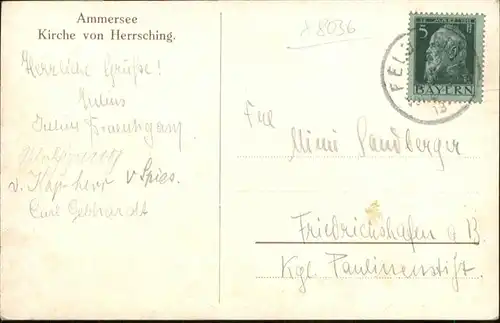 Ammersee
Kirche von Herrsching.
Herrliche Grüße!
Julius
Julius
v. Kap-herr v Spies.
Curt Gebhardt
x 8036
5
BAYERN
FELD
13
Frl
Mimi Sandberger
Friedrichshafen a B.
Kgl. Paulinenstift